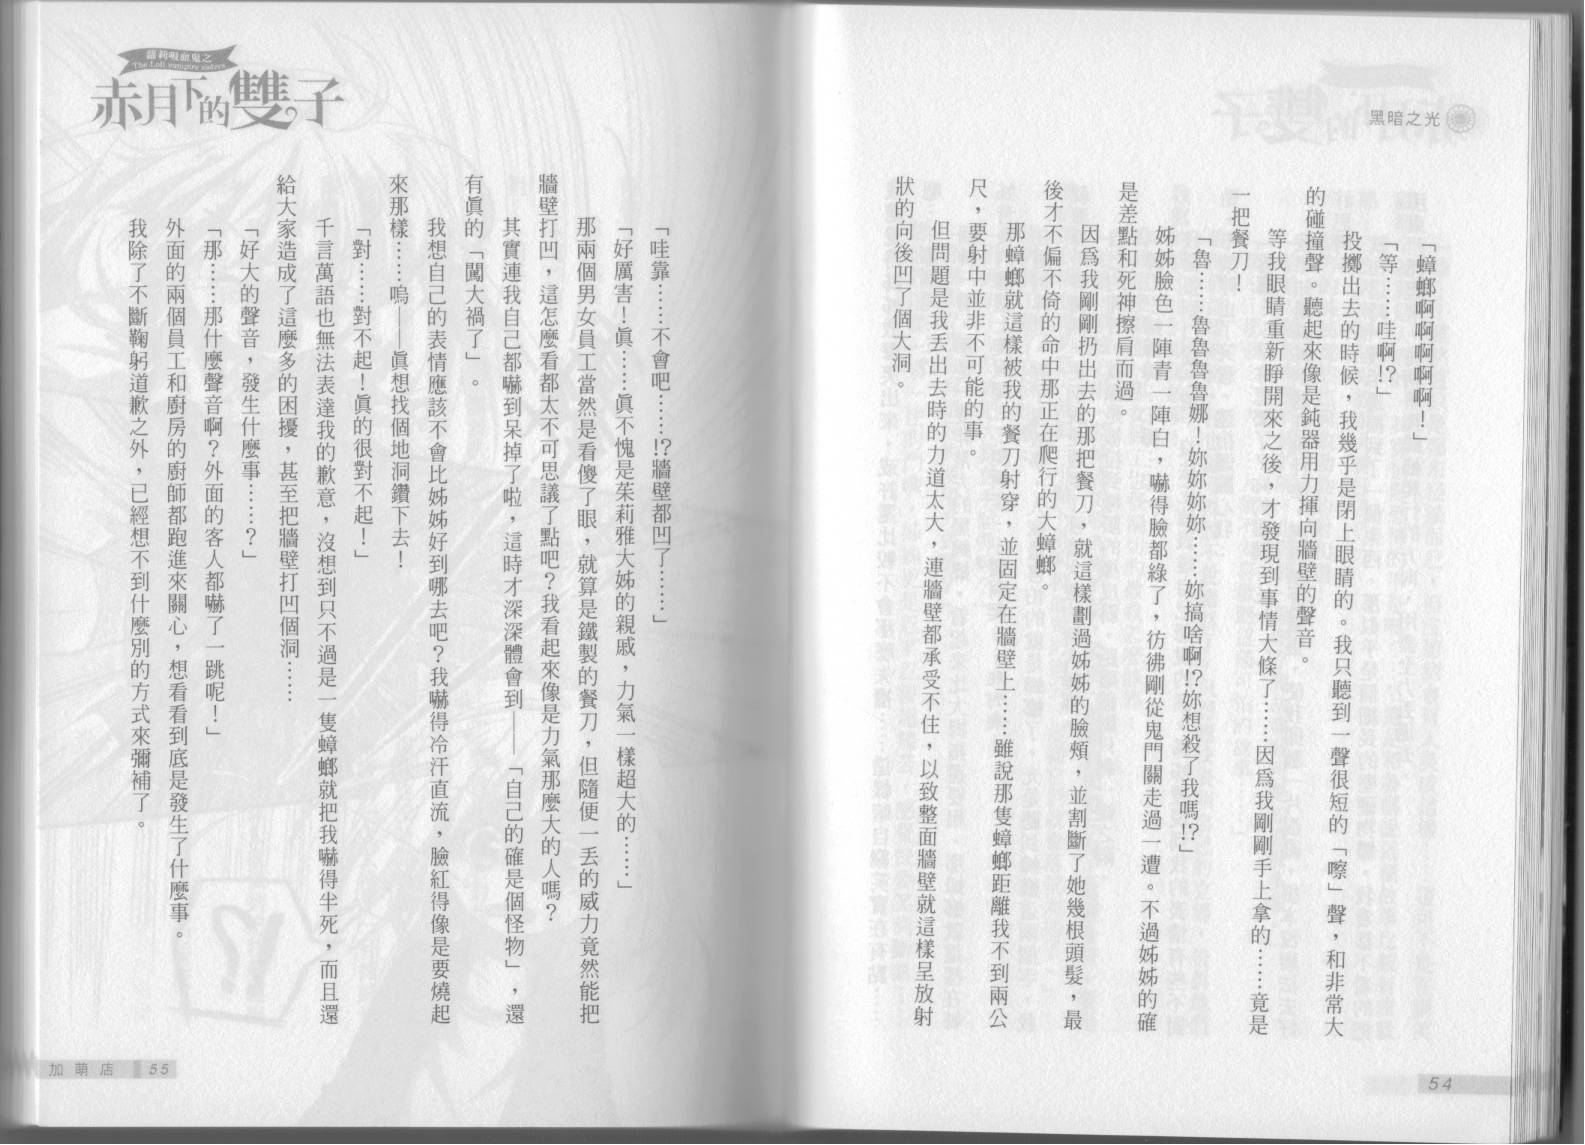 黑暗之光
「蟑螂啊啊啊啊啊！」
「等……哇啊!?」
投擲出去的時候，我幾乎是閉上眼睛的。我只聽到一聲很短的「嚓」聲，和非常大
的碰撞聲。聽起來像是鈍器用力揮向牆壁的聲音。
等我眼睛重新睜開來之後，才發現到事情大條了……因爲我剛剛手上拿的……竟是
一把餐刀！
「魯……魯魯魯魯娜！妳妳妳妳……妳搞啥啊!?妳想殺了我嗎!?」
姊姊臉色一陣青一陣白，嚇得臉都綠了，彷彿剛從鬼門關走過一遭。不過姊姊的確
是差點和死神擦肩而過。
因爲我剛剛扔出去的那把餐刀，就這樣劃過姊姊的臉頰，並割斷了她幾根頭髮，最
後才不偏不倚的命中那正在爬行的大蟑螂。
那蟑螂就這樣被我的餐刀射穿，並固定在牆壁上……雖說那隻蟑螂距離我不到兩公
尺，要射中並非不可能的事。
但問題是我丟出去時的力道太大，連牆壁都承受不住，以致整面牆壁就這樣呈放射
狀的向後凹了個大洞。
54
蘿莉吸血鬼之
The Loli vampire sisters
赤月下的雙子
「哇靠……不會吧……!?牆壁都凹了……」
「好厲害！眞……眞不愧是茱莉雅大姊的親戚，力氣一樣超大的……」
那兩個男女員工當然是看傻了眼，就算是鐵製的餐刀，但隨便一丟的威力竟然能把
牆壁打凹，這怎麼看都太不可思議了點吧？我看起來像是力氣那麼大的人嗎？
其實連我自己都嚇到呆掉了啦，這時才深深體會到——「自己的確是個怪物」，還
有眞的「闖大禍了」。
我想自己的表情應該不會比姊姊好到哪去吧？我嚇得冷汗直流，臉紅得像是要燒起
來那樣……嗚——眞想找個地洞鑽下去！
「對……對不起！眞的很對不起！」
千言萬語也無法表達我的歉意，沒想到只不過是一隻蟑螂就把我嚇得半死，而且還
給大家造成了這麼多的困擾，甚至把牆壁打凹個洞……
「好大的聲音，發生什麼事……？」
「那……那什麼聲音啊？外面的客人都嚇了一跳呢！」
外面的兩個員工和廚房的廚師都跑進來關心，想看看到底是發生了什麼事。
我除了不斷鞠躬道歉之外，已經想不到什麼別的方式來彌補了。
加萌店 55